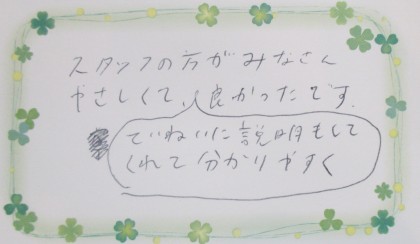 スタッフの方がみなさん
やさしくて、良かったです.
ていねいに説明もして
くれて分かりやすく